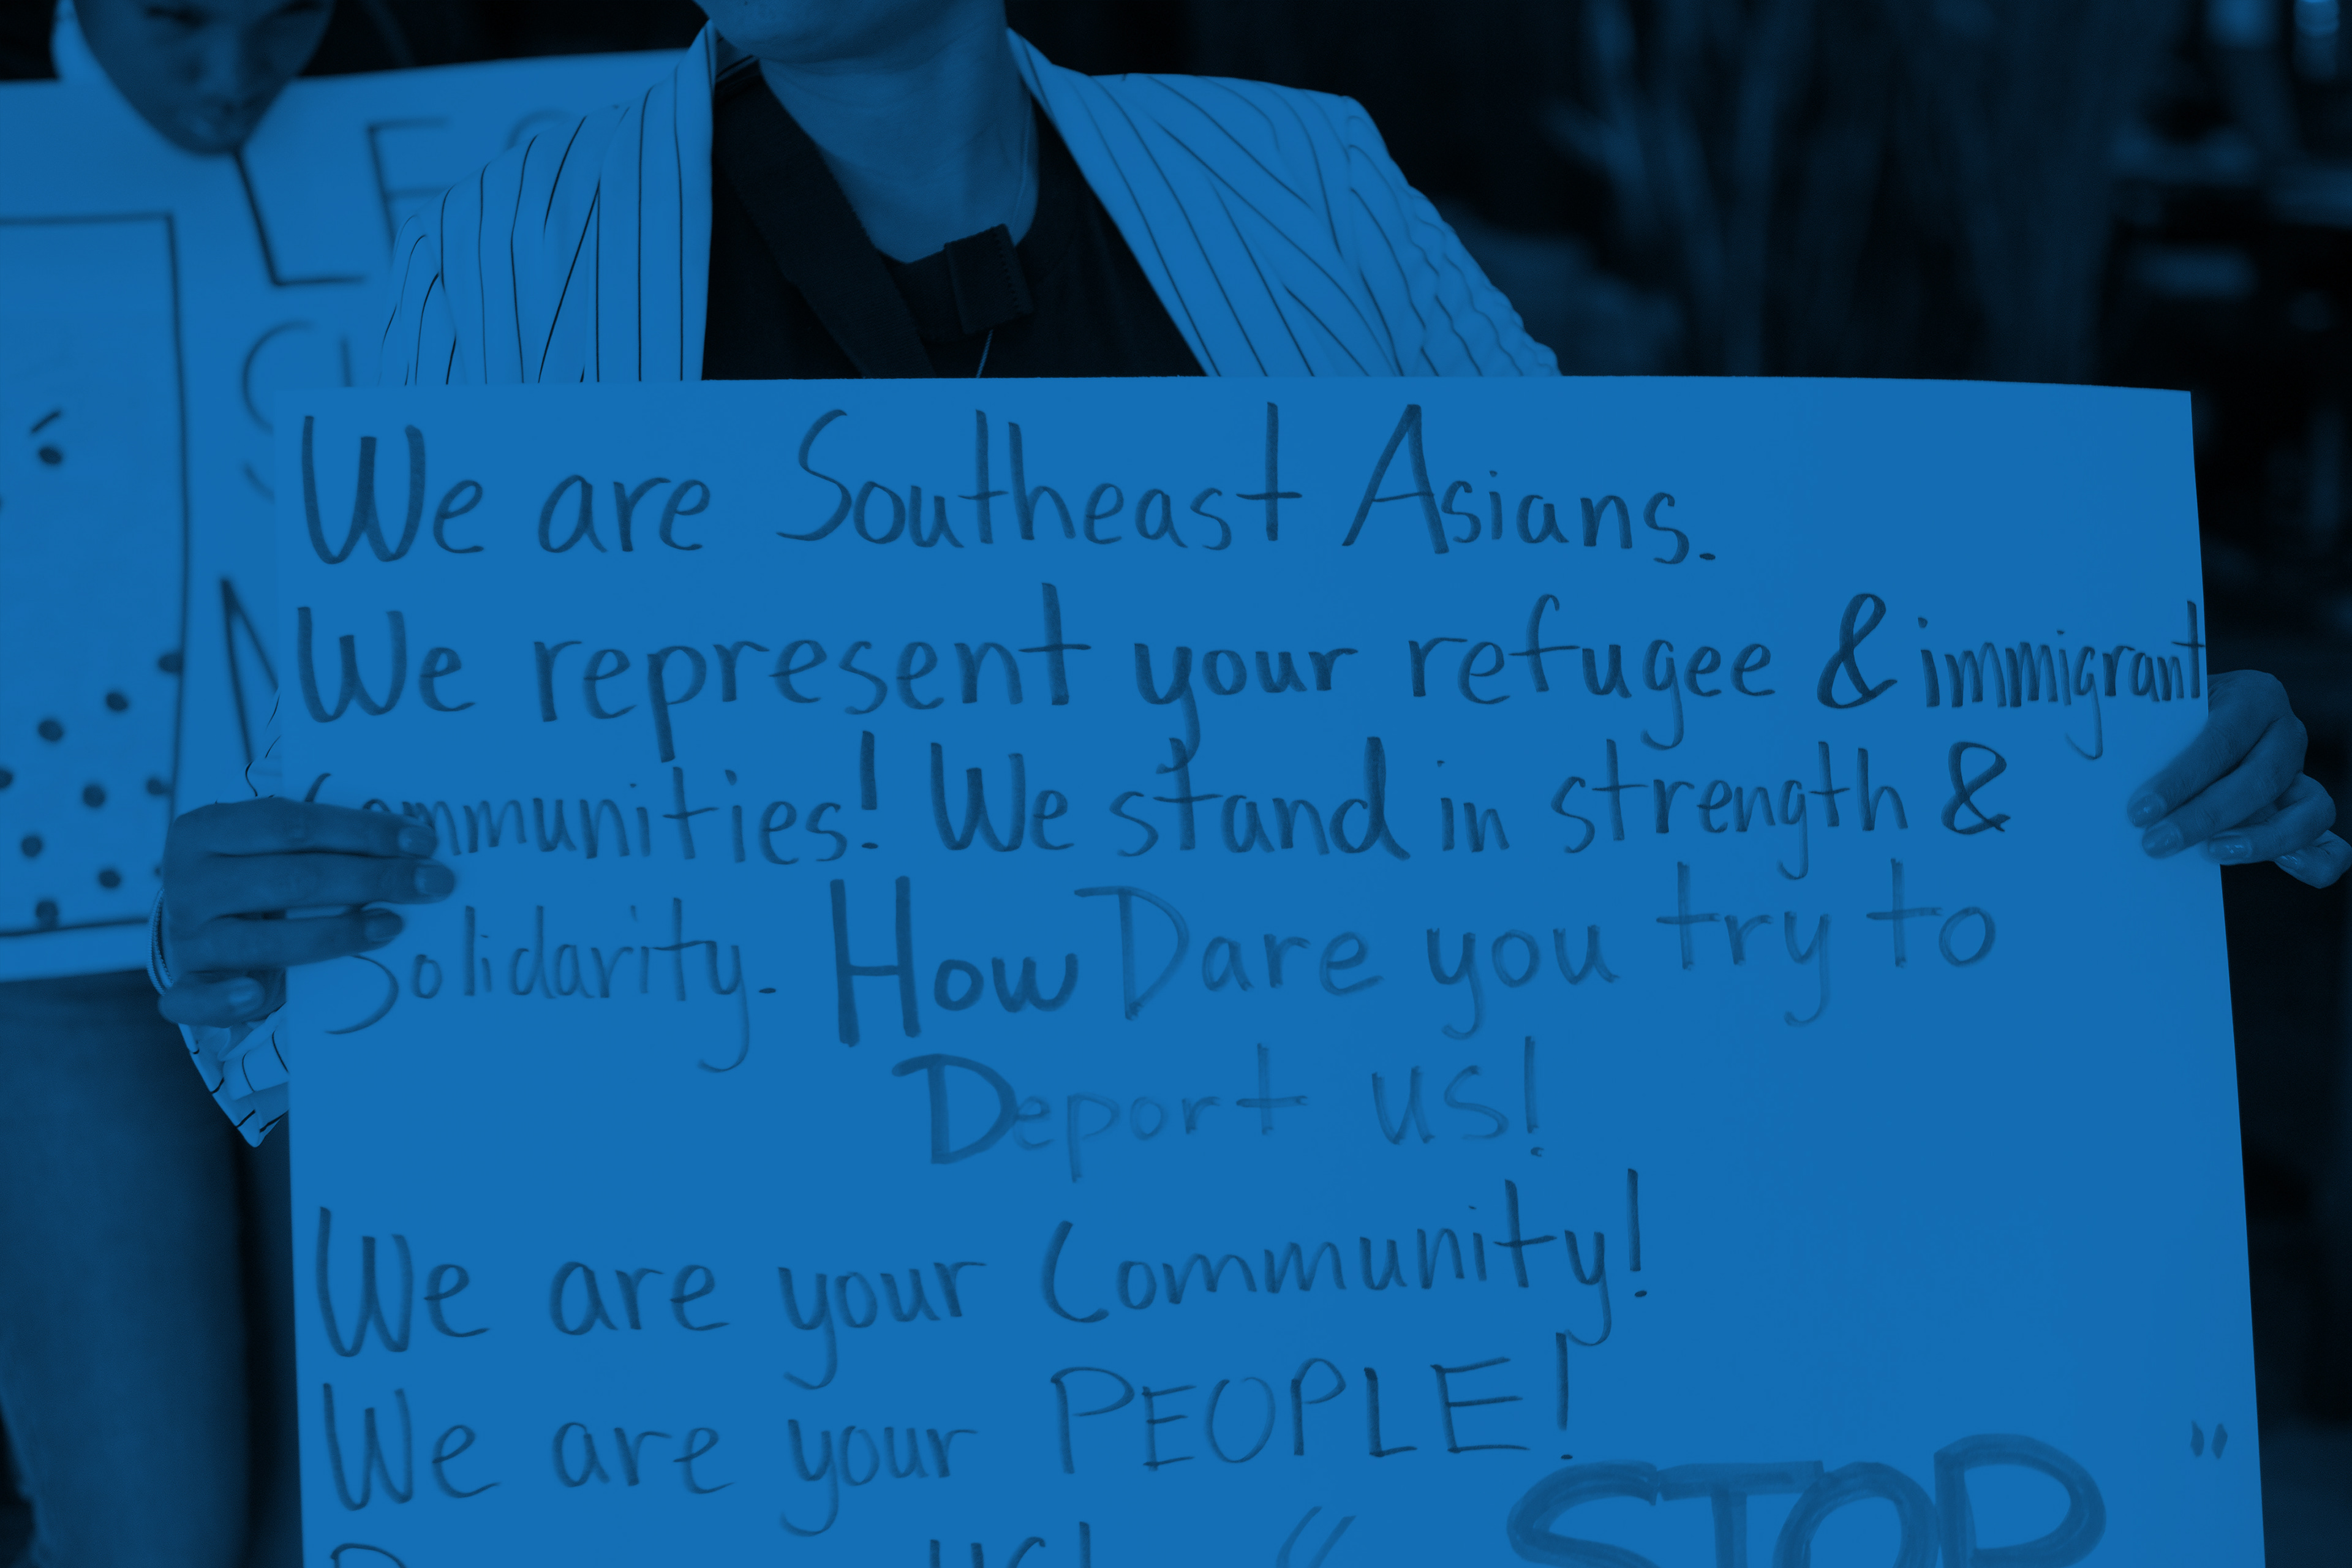 We are Southeast Asians.
We represent your refugee & immigrant
Communities! We stand in strength &
Solidarity. How Dare you try to
Deport us!
We are your Community!
We are your PEOPLE!
us! " STOP "